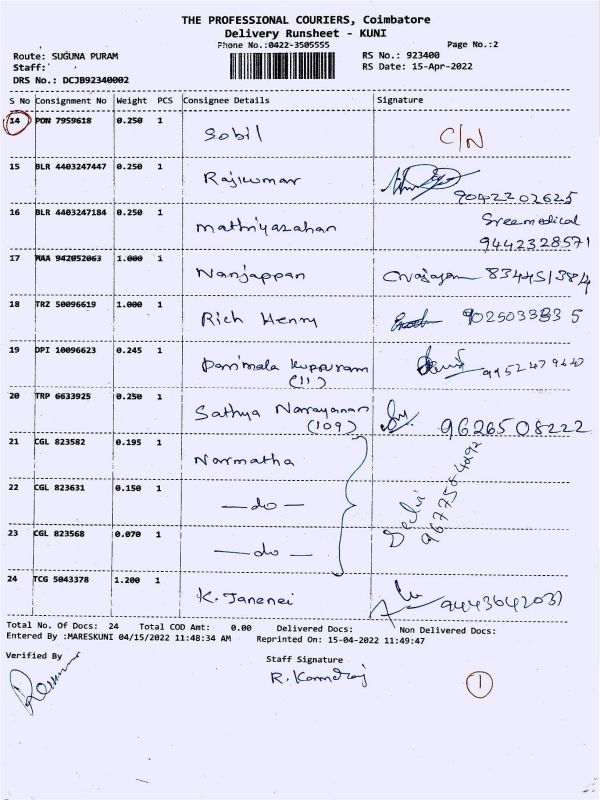 THE PROFESSIONAL COURIERS, Coimbatore
Delivery Runsheet - KUNI
Phone No.:0422-3505555
Page No.:2
Route: SUGUNA PURAM
RS No.: 923400
Staff:
RS Date: 15-Apr-2022
DRS No.: DCJB92340002
S No Consignment No Weight PCS Consignee Details Signature
14 PON 7959618 0.250 1 Sobil C/N
15 BLR 4403247447 0.250 1 Rajkumar 9042202625
16 BLR 4403247184 0.250 1 Mathiyazahan Sreemedical
9442328571
17 MAA 942052063 1.000 1 Nanjappan 834451384
18 TRZ 50096619 1.000 1 Rich Henny 9025033335
19 DPI 10096623 0.245 1 Parimala Kuppuram
(11)
20 TRP 6633925 0.250 1 Sathya Narayanan 9626508222
(109)
21 CGL 823582 0.195 1 Narmatha
22 CGL 823631 0.150 1 —do—
Selvi
23 CGL 823568 0.070 1 —do—
24 TCG 5043378 1.200 1 K. Janenei 9443642031
Total No. Of Docs: 24 Total COD Amt: 0.00 Delivered Docs: Non Delivered Docs:
Entered By :MARESKUNI 04/15/2022 11:48:34 AM Reprinted On: 15-04-2022 11:49:47
Verified By
Staff Signature
R. Kamaraj
1